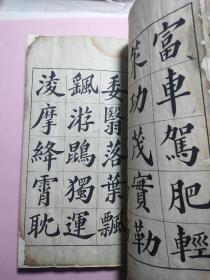 富車駕肥輕
策功茂實勒
委翳落葉飄
颻游鵾獨運
淩摩絳霄耽